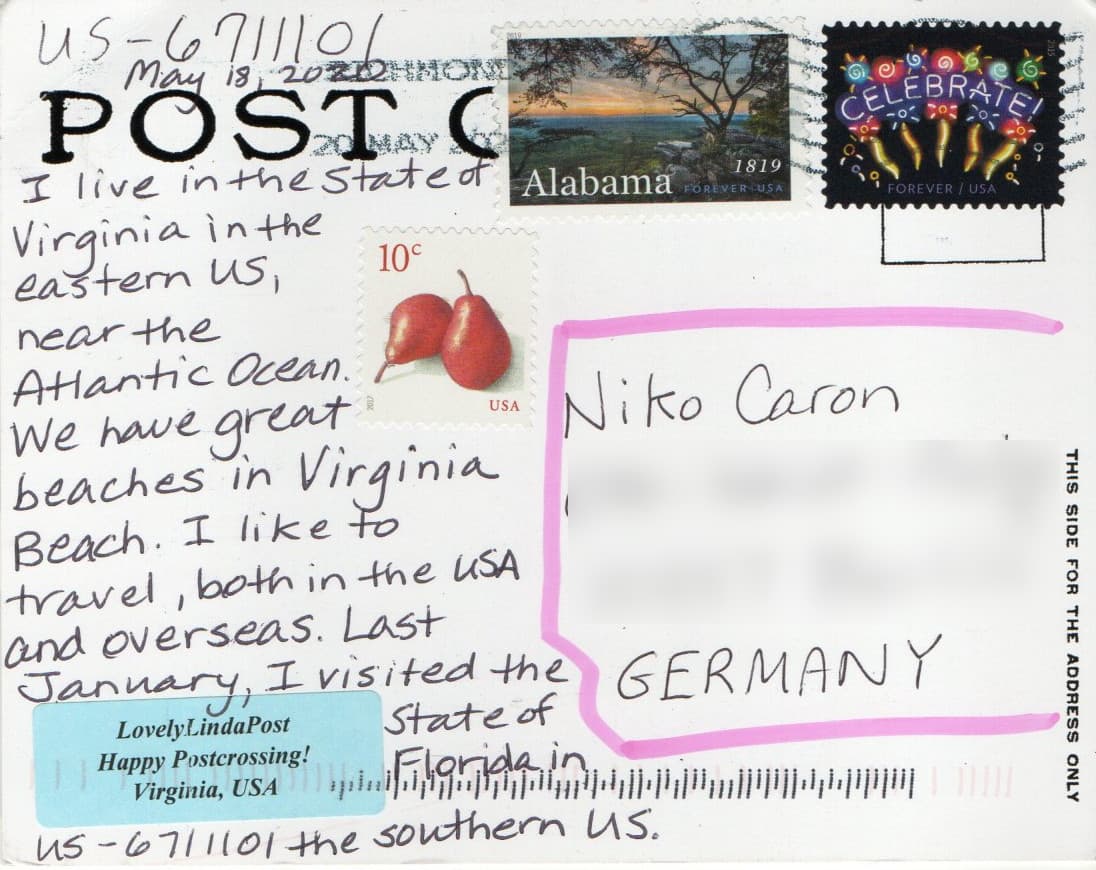 US-6711101
May 18, 2020
POST C
20 MAY
I live in the State of
Virginia in the
eastern US,
near the
Atlantic Ocean.
We have great
beaches in Virginia
Beach. I like to
travel, both in the USA
and overseas. Last
January, I visited the
State of
Florida in
US-6711101 the southern US.
LovelyLindaPost
Happy Postcrossing!
Virginia, USA
1819
Alabama FOREVER USA
CELEBRATE!
FOREVER / USA
10c
2017
USA
Niko Caron
GERMANY
THIS SIDE FOR THE ADDRESS ONLY